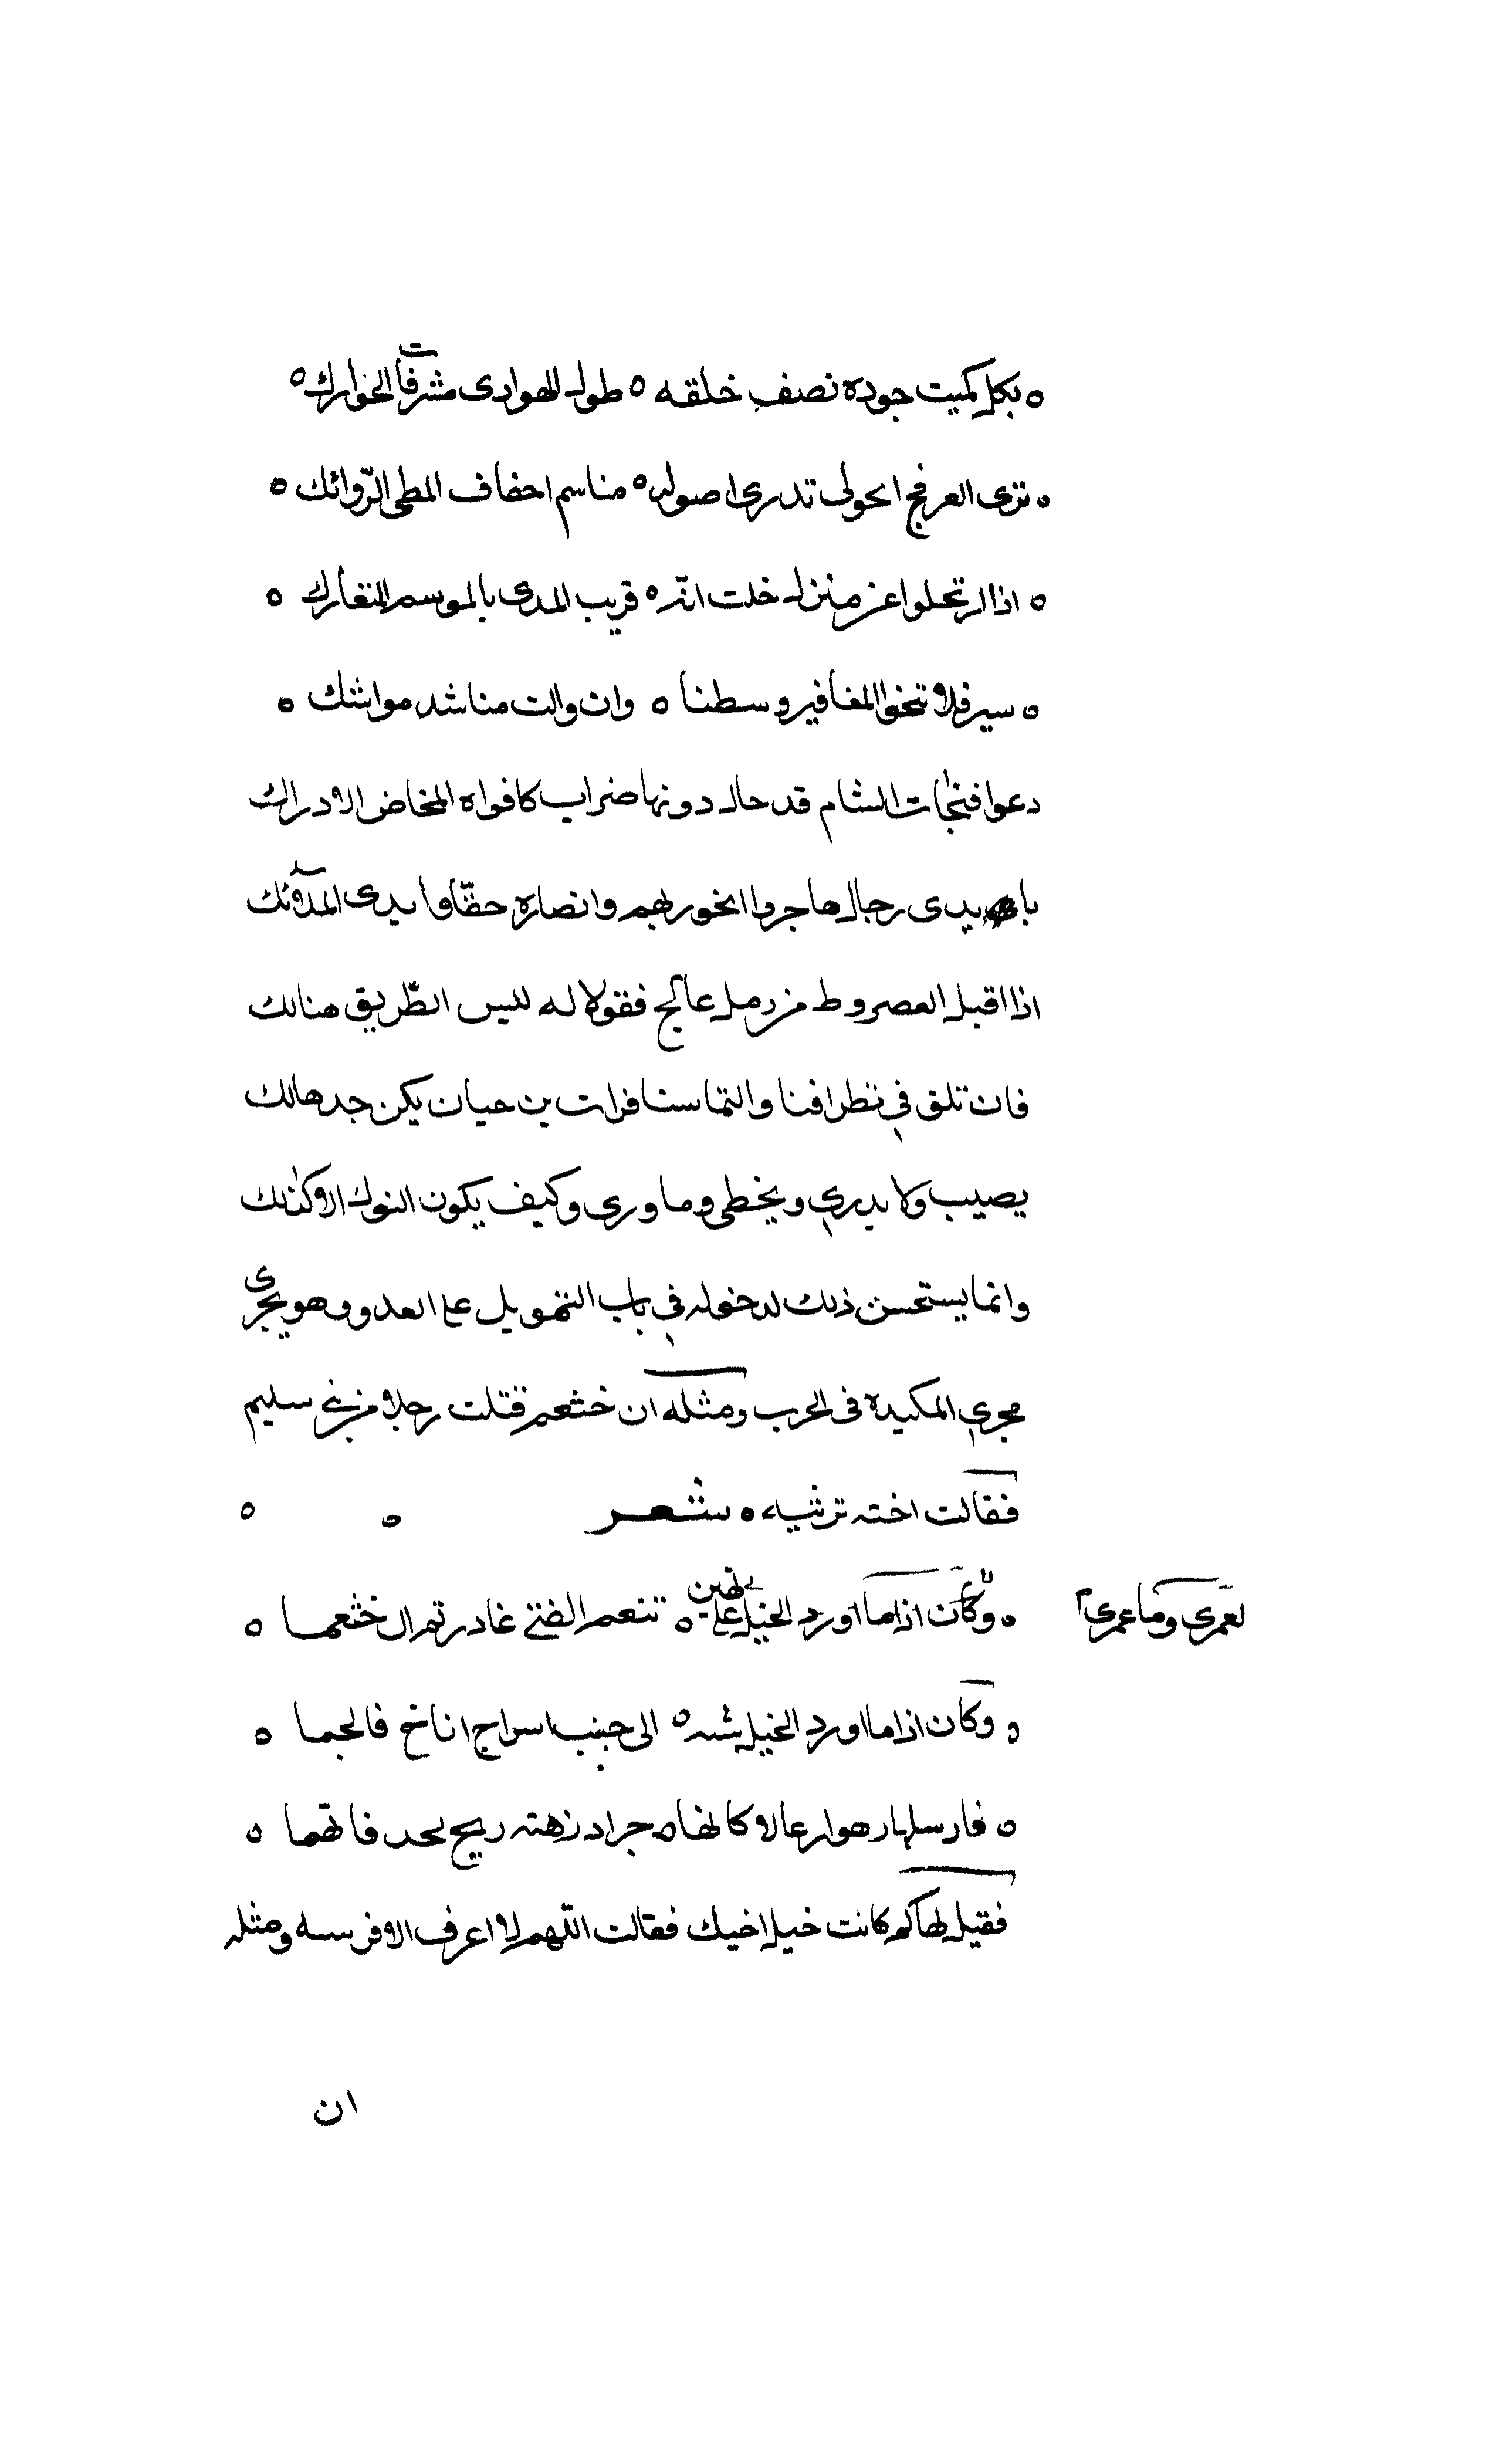 ه بكل كميت جوده نصف خلقه ه طول الهوادى مشرفات الحوارك ه
ه ترى العرفج الحولى تدرى اصوله ه مناسم احفاف المطى الرّوائك ه
ه اذا ارتحلوا عن منزل خلت انّه ه قريب المدى بالموسم المتعارك ه
ه سير فلا تنخو المغافير وسطنا ه وان والت منا شد مواشك ه
دعوا فلجات الشام قد حال دونها ضراب كافواه المخاض الاوارك
بايدى رجال هاجروا نحو ربهم وانصاره حقّا وايدى الملائك
اذا اقبل العصروط من رمل عالج فقولا له ليس الطّريق هنالك
فان تلق فى تطرافنا والتماسنا فرات بن حيان يكن جد هالك
يصيب ولا يدرى ويخطى وما ورى وكيف يكون النوك الا كذلك
وانما يستحسن ذلك لدخوله فى باب التهويل على العدو وهو يجرى
مجرى المكيده فى الحرب ومثله ان خثعم قتلت رجلا من بنى سليم
فقالت اخته ترثيه ه شعر ه ه
لعمرى وما عمرى
ه وكان اذا ما اورد الخيل على بهين ه لنعم الفتى غادرتم ال خثعما ه
ه وكان اذا ما اورد الخيل بيشه ه الى جنب اسراج اناخ فالجما ه
ه فارسلها رهوا رعالا كانها ه جراد زهته ريح نجد فاتهما ه
فقيل لها كم كانت خيل اخيك فقالت اللّهم لا اعرف الا فرسه ومثله
ان